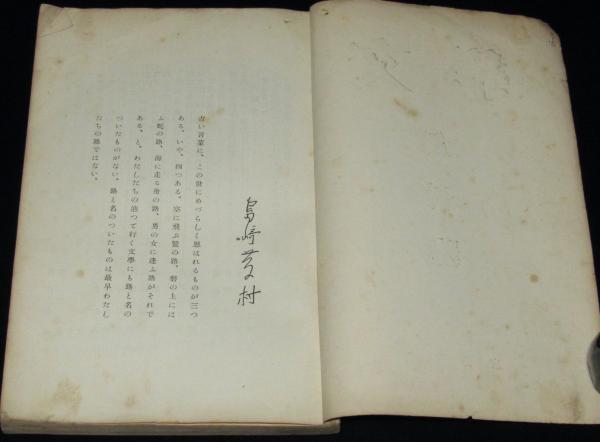 島崎藤村
古い言葉に、この世にめづらしく思はれるものが三つ
ある。いや、四つある。空に飛ぶ鷲の路、磐の上には
ふ蛇の路、海に走る舟の路、男の女に逢ふ路がそれで
ある、と。わたしたちの辿つて行く文學にも路と名の
ついたものがない。路と名のついたものは最早わたし
たちの路ではない。